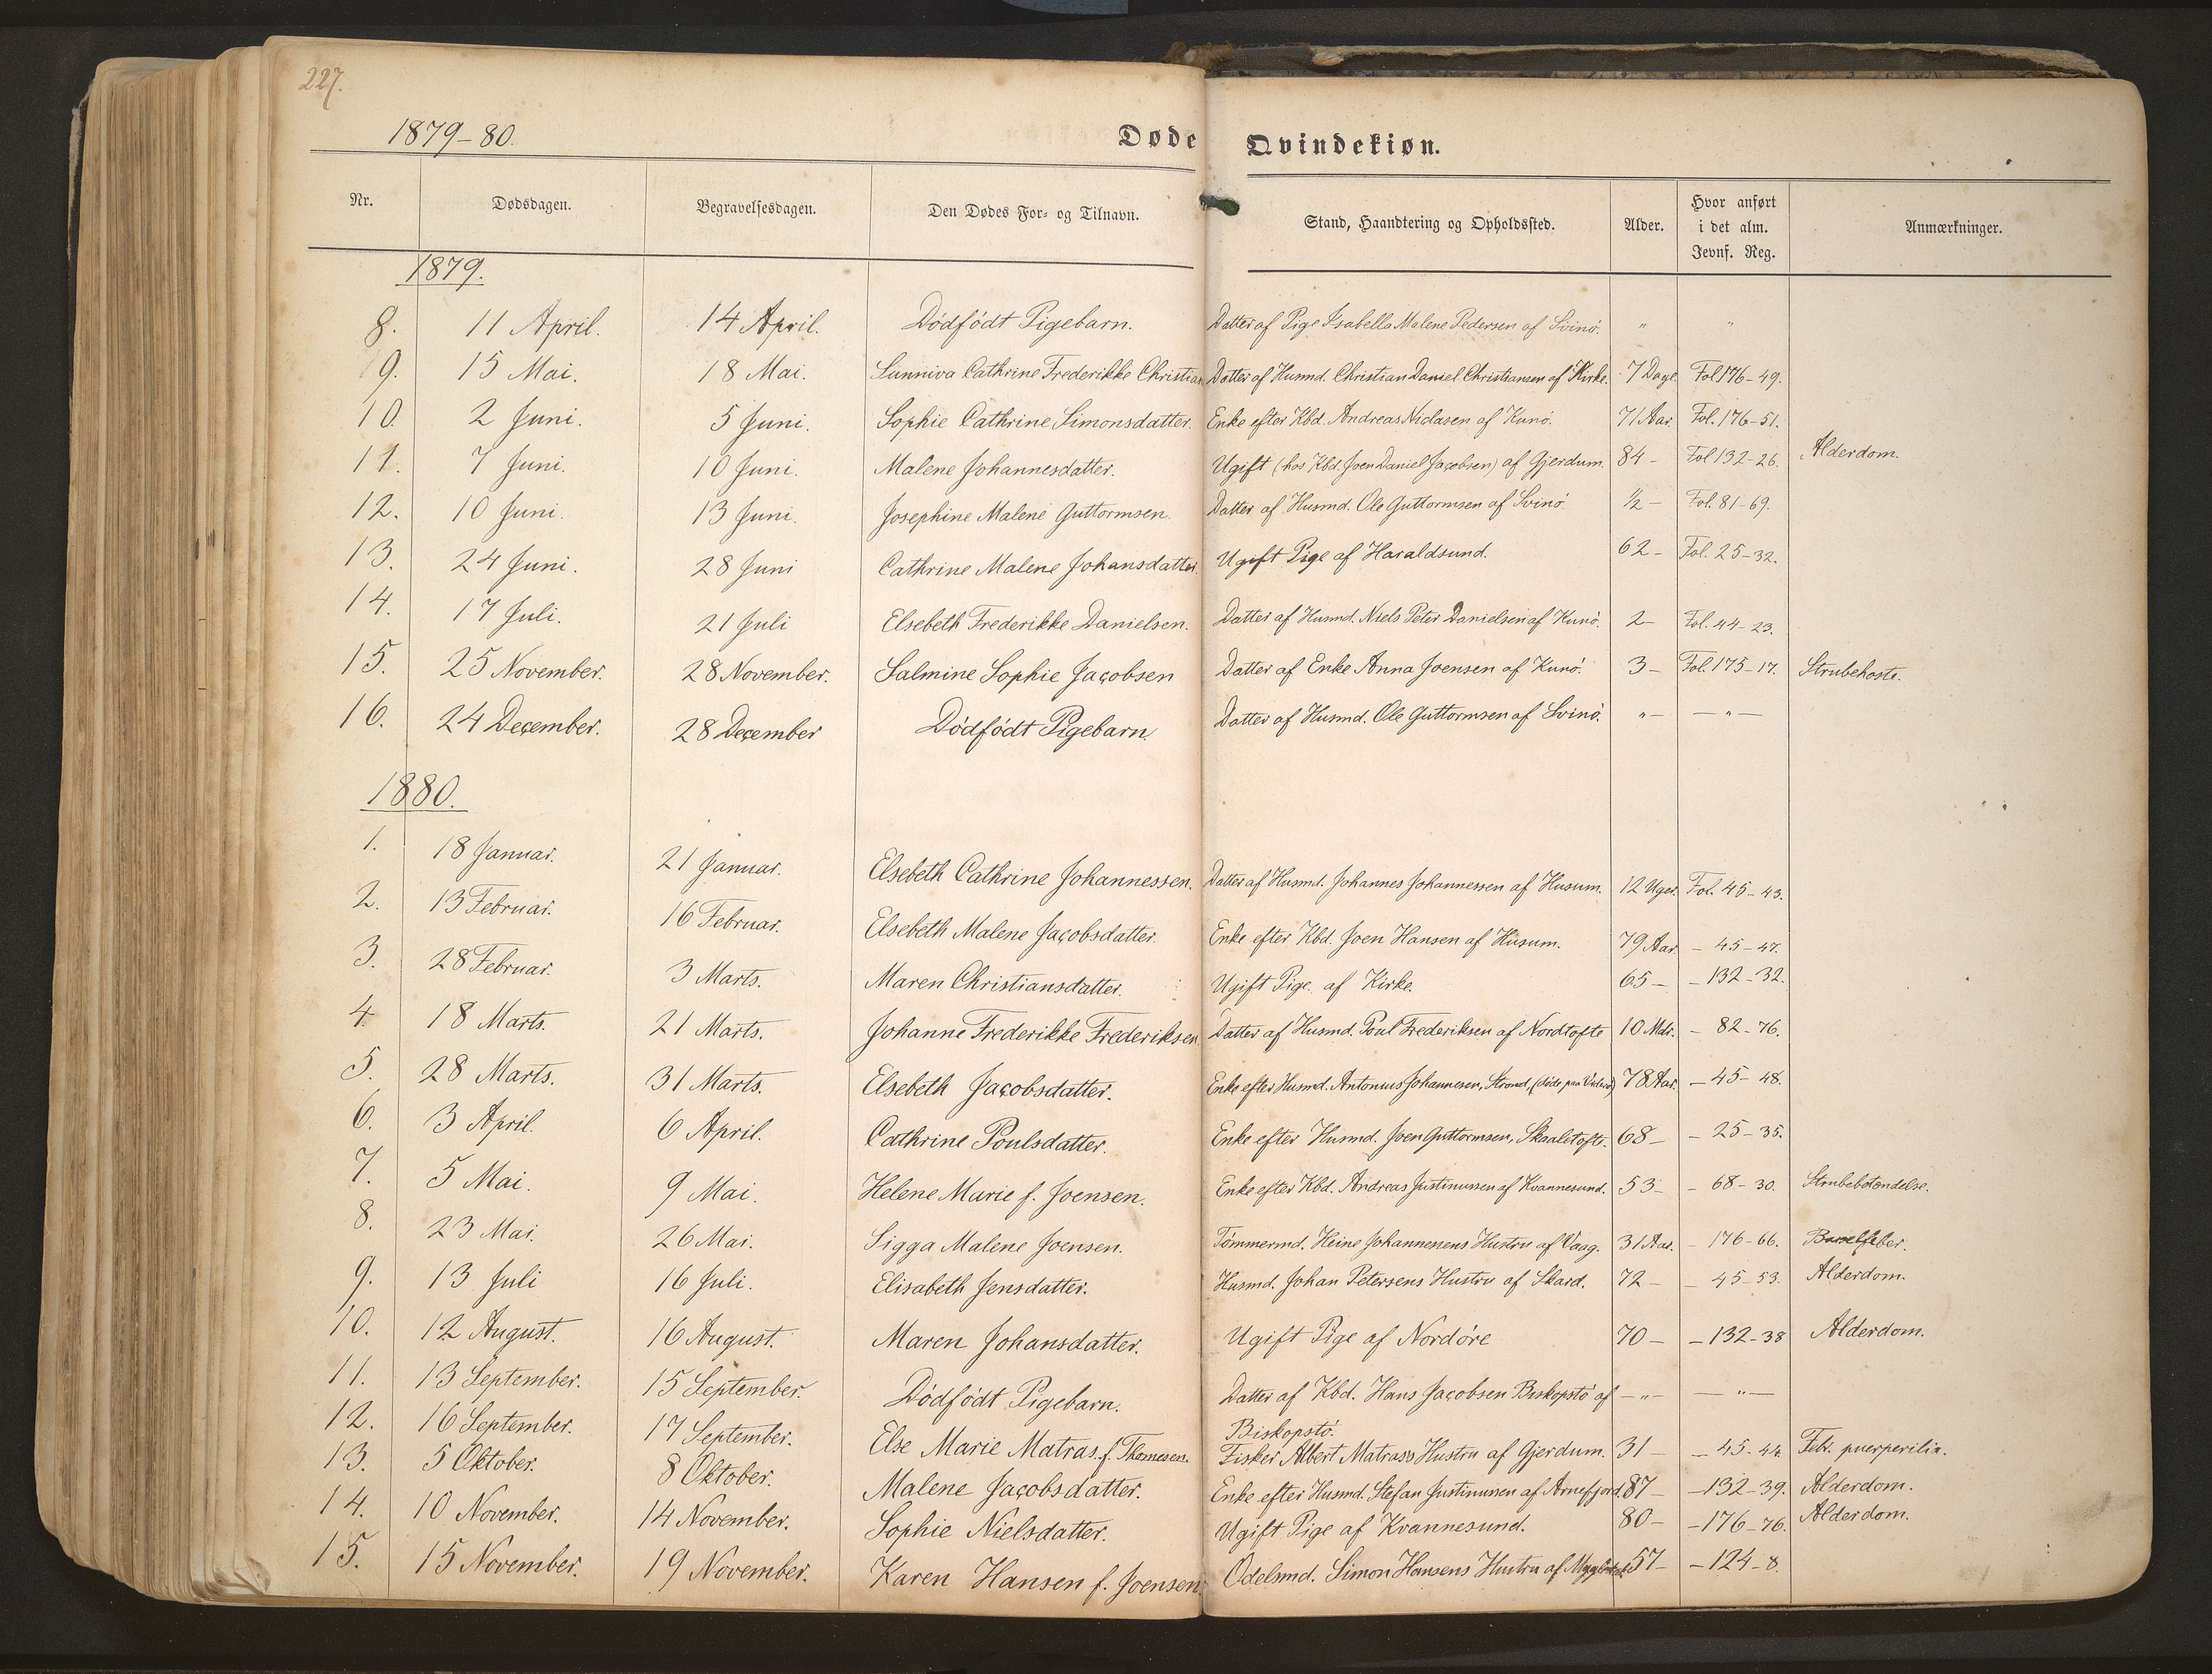 227.
1879-80.
Døde Qvindekiøn.
Nr. Dødsdagen. Begravelsesdagen. Den Dødes For- og Tilnavn. Stand, Haandtering og Opholdssted. Alder. Hvor anført i det alm. Jevnf. Reg. Anmærkninger.
1879.
8. 11 April. 14 April. Dödfödt Pigebarn. Datter af Pige Isabella Malene Pedersen af Svinö. " "
9. 15 Mai. 18 Mai. Sunniva Cathrine Frederikke Christian Datter af Husmd. Christian Daniel Christiansen af Kirke. 7 Dage Fol 176-49.
10. 2 Juni. 5 Juni. Sophie Cathrine Simonsdatter. Enke efter Kbd. Andreas Niclasen af Kunö. 71 Aar. Fol. 176-51.
11. 7 Juni. 10 Juni. Malene Johannesdatter. Ugift (hos Kbd. Joen Daniel Jacobsen) af Gjerdum. 84 - Fol 132-26. Alderdom.
12. 10 Juni. 13 Juni. Josephine Malene Guttormsen. Datter af Husmd. Ole Guttormsen af Svinö. ½ - Fol. 81-69.
13. 24 Juni. 28 Juni Cathrine Malene Johansdatter. Ugift Pige af Haraldsund. 62 - Fol. 25-32.
14. 17 Juli. 21 Juli Elsebeth Frederikke Danielsen. Datter af Husmd. Niels Peter Danielsen af Kunö. 2 - Fol. 44-23.
15. 25 November. 28 November. Salmine Sophie Jacobsen Datter af Enke Anna Joensen af Kunö. 3 - Fol. 175-17. Strubehoste.
16. 24 December. 28 December Dödfödt Pigebarn. Datter af Husmd. Ole Guttormsen af Svinö. " - - " -
1880.
1. 18 Januar. 21 Januar. Elsebeth Cathrine Johannessen. Datter af Husmd. Johannes Johannessen af Husum. 12 Uger. Fol. 45-43.
2. 13 Februar. 16 Februar. Elsebeth Malene Jacobsdatter. Enke efter Kbd. Joen Hansen af Husum. 79 Aar - 45-47.
3. 28 Februar. 3 Marts. Maren Christiansdatter. Ugift Pige af Kirke. 65 - - 132-32.
4. 18 Marts. 21 Marts. Johanne Frederikke Frederiksen. Datter af Husmd. Poul Frederiksen af Nordtofte 10 Mdr. - 82-76.
5. 28 Marts. 31 Marts. Elsebeth Jacobsdatter. Enke efter Husmd. Antonius Johannesen, Strond, (döde paa Viderö) 78 Aar. - 45-48.
6. 3 April. 6 April. Cathrine Poulsdatter. Enke efter Husmd. Joen Guttormsen, Skaaletofte. 68 - - 25-35.
7. 5 Mai. 9 Mai. Helene Marie f. Joensen. Enke efter Kbd. Andreas Justinussen af Kvannesund. 53 - - 68-30. Strubebetændelse.
8. 23 Mai. 26 Mai. Sigga Malene Joensen. Tömmermd. Heine Johannesens Hustru af Vaag. 31 Aar. - 176-66. Barselfeber.
9. 13 Juli 16 Juli. Elisabeth Jensdatter. Husmd. Johan Petersens Hustru af Skard. 72 - - 45-53. Alderdom.
10. 12 August. 16 August. Maren Johansdatter. Ugift Pige af Nordöre 70 - - 132-38 Alderdom.
11. 13 September. 15 September. Dödfödt Pigebarn. Datter af Kbd. Hans Jacobsen Biskopstö af - " - - " -
Biskopstö.
12. 16 September. 17 September. Else Marie Matras f. Thomesen. Fisker Albert Matras's Hustru af Gjerdum. 31 - - 45-44. Feb. puerperilia.
13. 5 Oktober. 8 Oktober. Malene Jacobsdatter. Enke efter Husmd. Stefan Justinussen af Arnefjord. 87 - - 132-39. Alderdom.
14. 10 November. 14 November. Sophie Nielsdatter. Ugift Pige af Kvannesund. 80 - - 176-76. Alderdom.
15. 15 November. 19 November. Karen Hansen f. Joensen. Odelsmd. Simon Hansens Hustru af 57 - - 124-8.